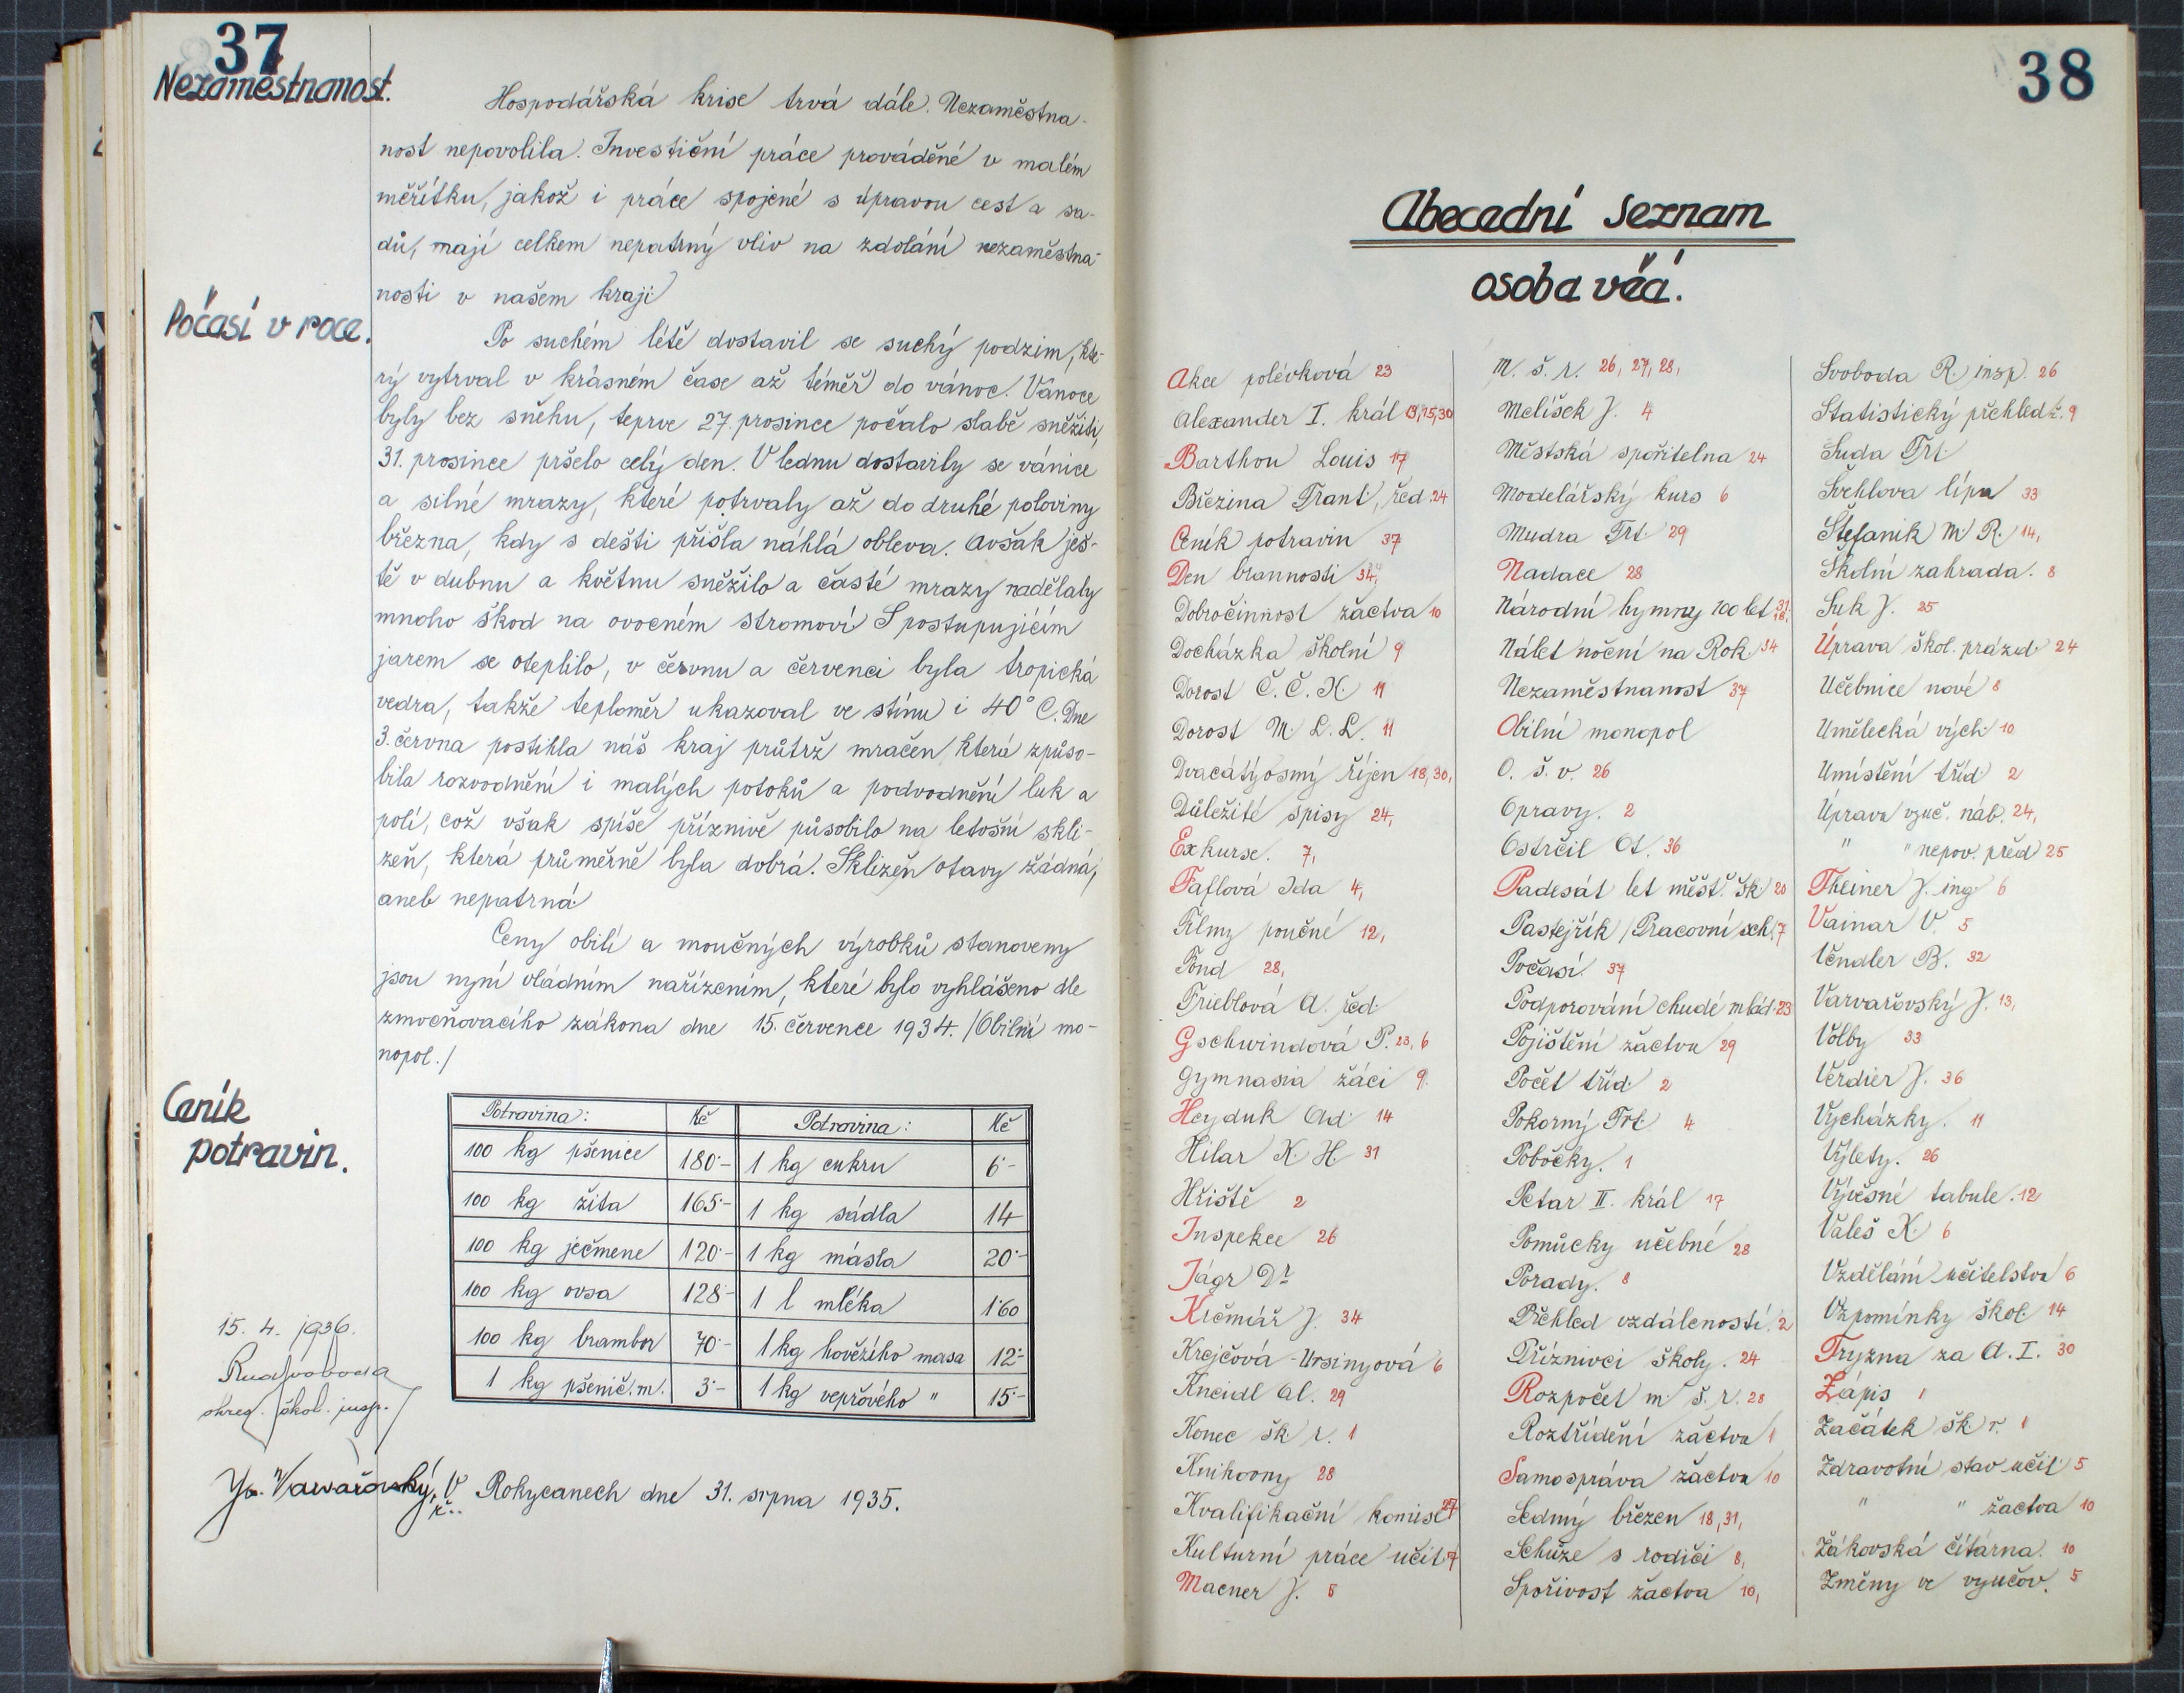 37
Nezaměstnanost.
Hospodářská krise trvá dále. Nezaměstna-
nost nepovolila. Investiční práce prováděné v malém
měřítku, jakož i práce spojené s úpravou cest a sa-
dů, mají celkem nepatrný vliv na zdolání nezaměstna-
nosti v našem kraji
Počasí v roce.
Po suchém létě dostavil se suchý podzim, kte-
rý vytrval v krásném čase až téměř do vánoc. Vánoce
byly bez sněhu, teprve 27. prosince počalo slabě sněžiti,
31. prosince pršelo celý den. V lednu dostavily se vánice
a silné mrazy, které potrvaly až do druhé poloviny
března, kdy s dešti přišla náhlá obleva. Avšak ješ-
tě v dubnu a květnu sněžilo a časté mrazy nadělaly
mnoho škod na ovocném stromoví S postupujícím
jarem se oteplilo, v červnu a červenci byla tropická
vedra, takže teploměr ukazoval ve stínu i 40° C. Dne
3. června postihla náš kraj průtrž mračen, která způso-
bila rozvodnění i malých potoků a podvodnění luk a
polí, což však spíše příznivě působilo na letošní skli-
zeň, která průměrně byla dobrá. Sklizeň otavy žádná,
aneb nepatrná.
Ceny obilí a moučných výrobků stanoveny
jsou nyní vládním nařízením, které bylo vyhlášeno dle
zmocňovacího zákona dne 15. července 1934. /Obilní mo-
nopol./
Ceník
potravin.
Potravina: Kč Potravina: Kč
100 kg pšenice 180·- 1 kg cukru 6·-
100 kg žita 165·- 1 kg sádla 14
100 kg ječmene 120·- 1 kg másla 20·-
100 kg ovsa 128·- 1 l mléka 1·60
100 kg brambor 70·- 1 kg hovězího masa 12·-
1 kg pšenič. m. 3·- 1 kg vepřového " 15·-
15. 4. 1936.
Rud Svoboda
okres. škol. insp.
V Rokycanech dne 31. srpna 1935.
38
Abecední seznam
osob a věcí.
Akce polévková 23
Alexander I. král 13,15,30
Barthou Louis 17
Březina Frant., řed. 24
Ceník potravin 37
Den brannosti 34,
Dobročinnost žactva 10
Docházka školní 9
Dorost Č. Č. K. 11
Dorost M. L. L. 11
Dvacátýosmý říjen 18,30,
Důležité spisy 24,
Exkurse. 7,
Faflová Ida 4,
Filmy poučné 12,
Fond 28,
Frieblová A. řed.
Gschwindová P. 23, 6
Gymnasia žáci 9.
Heyduk Ad. 14
Hilar K. H. 31
Hřiště 2
Inspekce 26
Jágr Dr
Krčmář J. 34
Krejčová-Ursinyová 6
Kneidl Al. 29
Konec šk. r. 1
Knihovny 28
Kvalifikační komise 27
Kulturní práce učit. 7
Macner J. 5
M. š. r. 26, 27, 28,
Melíšek J. 4
Městská spořitelna 24
Modelářský kurs 6
Mudra Frt. 29
Nadace 28
Národní hymny 100 let 31, 18,
Nálet noční na Rok. 34
Nezaměstnanost 37
Obilní monopol
O. š. v. 26
Opravy. 2
Ostrčil Ot. 36
Padesát let měšť. šk. 20
Pastejřík /Pracovní sch. 7
Počasí. 37
Podporování chudé mlád. 23
Pojištění žactva 29
Počet tříd. 2
Pokorný Frt. 4
Pobočky. 1
Petar II. král 17
Pomůcky učebné 28
Porady. 8
Přehled vzdáleností. 2
Příznivci školy. 24
Rozpočet m. š. r. 28
Roztřídění žactva 1
Samospráva žactva 10
Sedmý březen 18,31,
Schůze s rodiči 8,
Spořivost žactva 10,
Svoboda R. insp. 26
Statistický přehled ž. 9
Suda Frt.
Švehlova lípa 33
Štefanik M. R. 14,
Školní zahrada. 8
Suk J. 25
Úprava škol. prázd. 24
Učebnice nové 8
Umělecká vých. 10
Umístění tříd. 2
Úprava vyuč. náb. 24,
" " nepov. před 25
Theiner J. ing. 6
Vainar V. 5
Vendler B. 32
Varvařovský J. 13,
Volby 33
Verdier J. 36
Vycházky. 11
Výlety. 26
Vývěsné tabule. 12
Valeš K. 6
Vzdělání učitelstva 6
Vzpomínky škol. 14
Tryzna za A. I. 30
Zápis 1
Začátek šk. r. 1
Zdravotní stav učit. 5
" " žactva 10
Žákovská čítárna. 10
Změny ve vyučov. 5